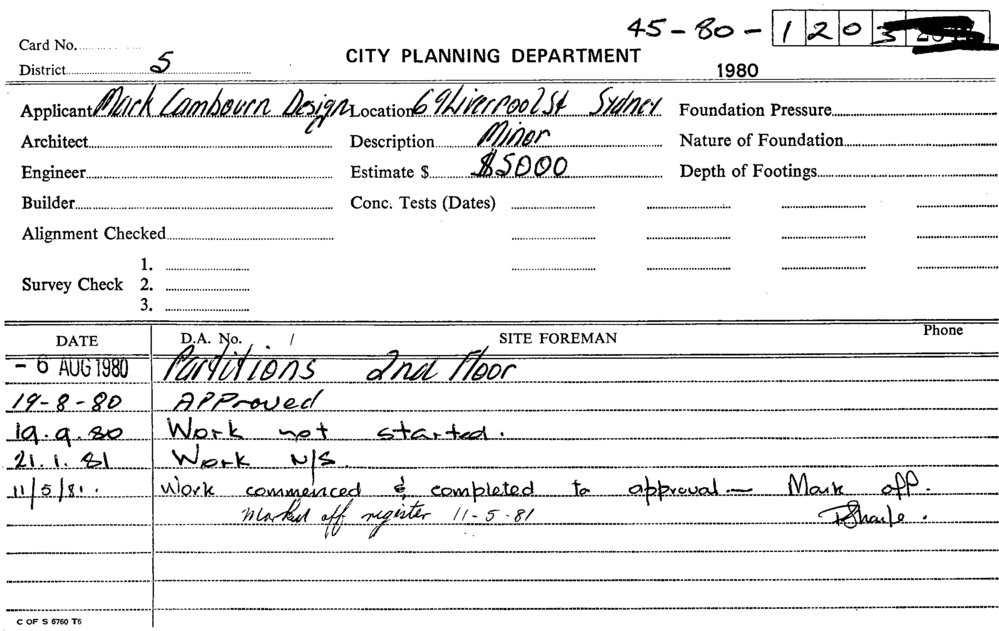 45-80-1203
Card No.
District 5
CITY PLANNING DEPARTMENT
1980
Applicant Mark Cambourn Design Location 69 Liverpool St Sydney Foundation Pressure
Architect Description Minor Nature of Foundation
Engineer Estimate $ $5000 Depth of Footings
Builder Conc. Tests (Dates)
Alignment Checked
1.
Survey Check 2.
3.
DATE D.A. No. / SITE FOREMAN Phone
- 6 AUG 1980 Partitions 2nd Floor
19-8-80 APProved
19.9.80 Work not started.
21.1.81 Work N/S.
11/5/81. Work commenced & completed to approval — Mark off.
Marked off register 11-5-81
C OF S 6760 T6